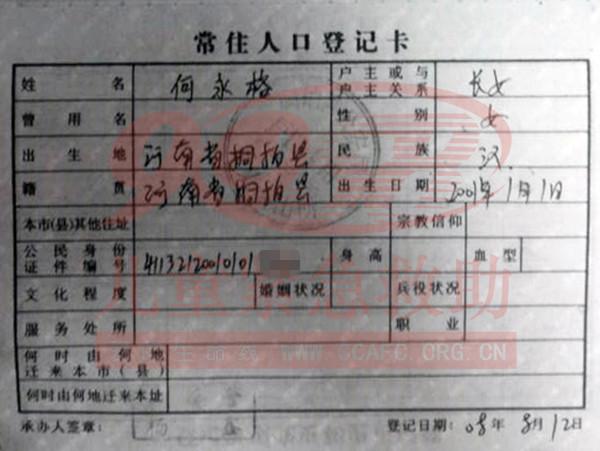 常住人口登记卡
姓名 何永格 户主或与户主关系 长女
曾用名 性别 女
出生地 河南省桐柏县 民族 汉
籍贯 河南省桐柏县 出生日期 2001年1月1日
本市(县)其他住址 宗教信仰
公民身份证件编号 41132120010101 身高 血型
文化程度 婚姻状况 兵役状况
服务处所 职业
何时由何地迁来本市(县)
何时由何地迁来本址
承办人签章: 登记日期: 08年8月12日
儿童紧急救助
生命线 WWW.CCAFC.ORG.CN